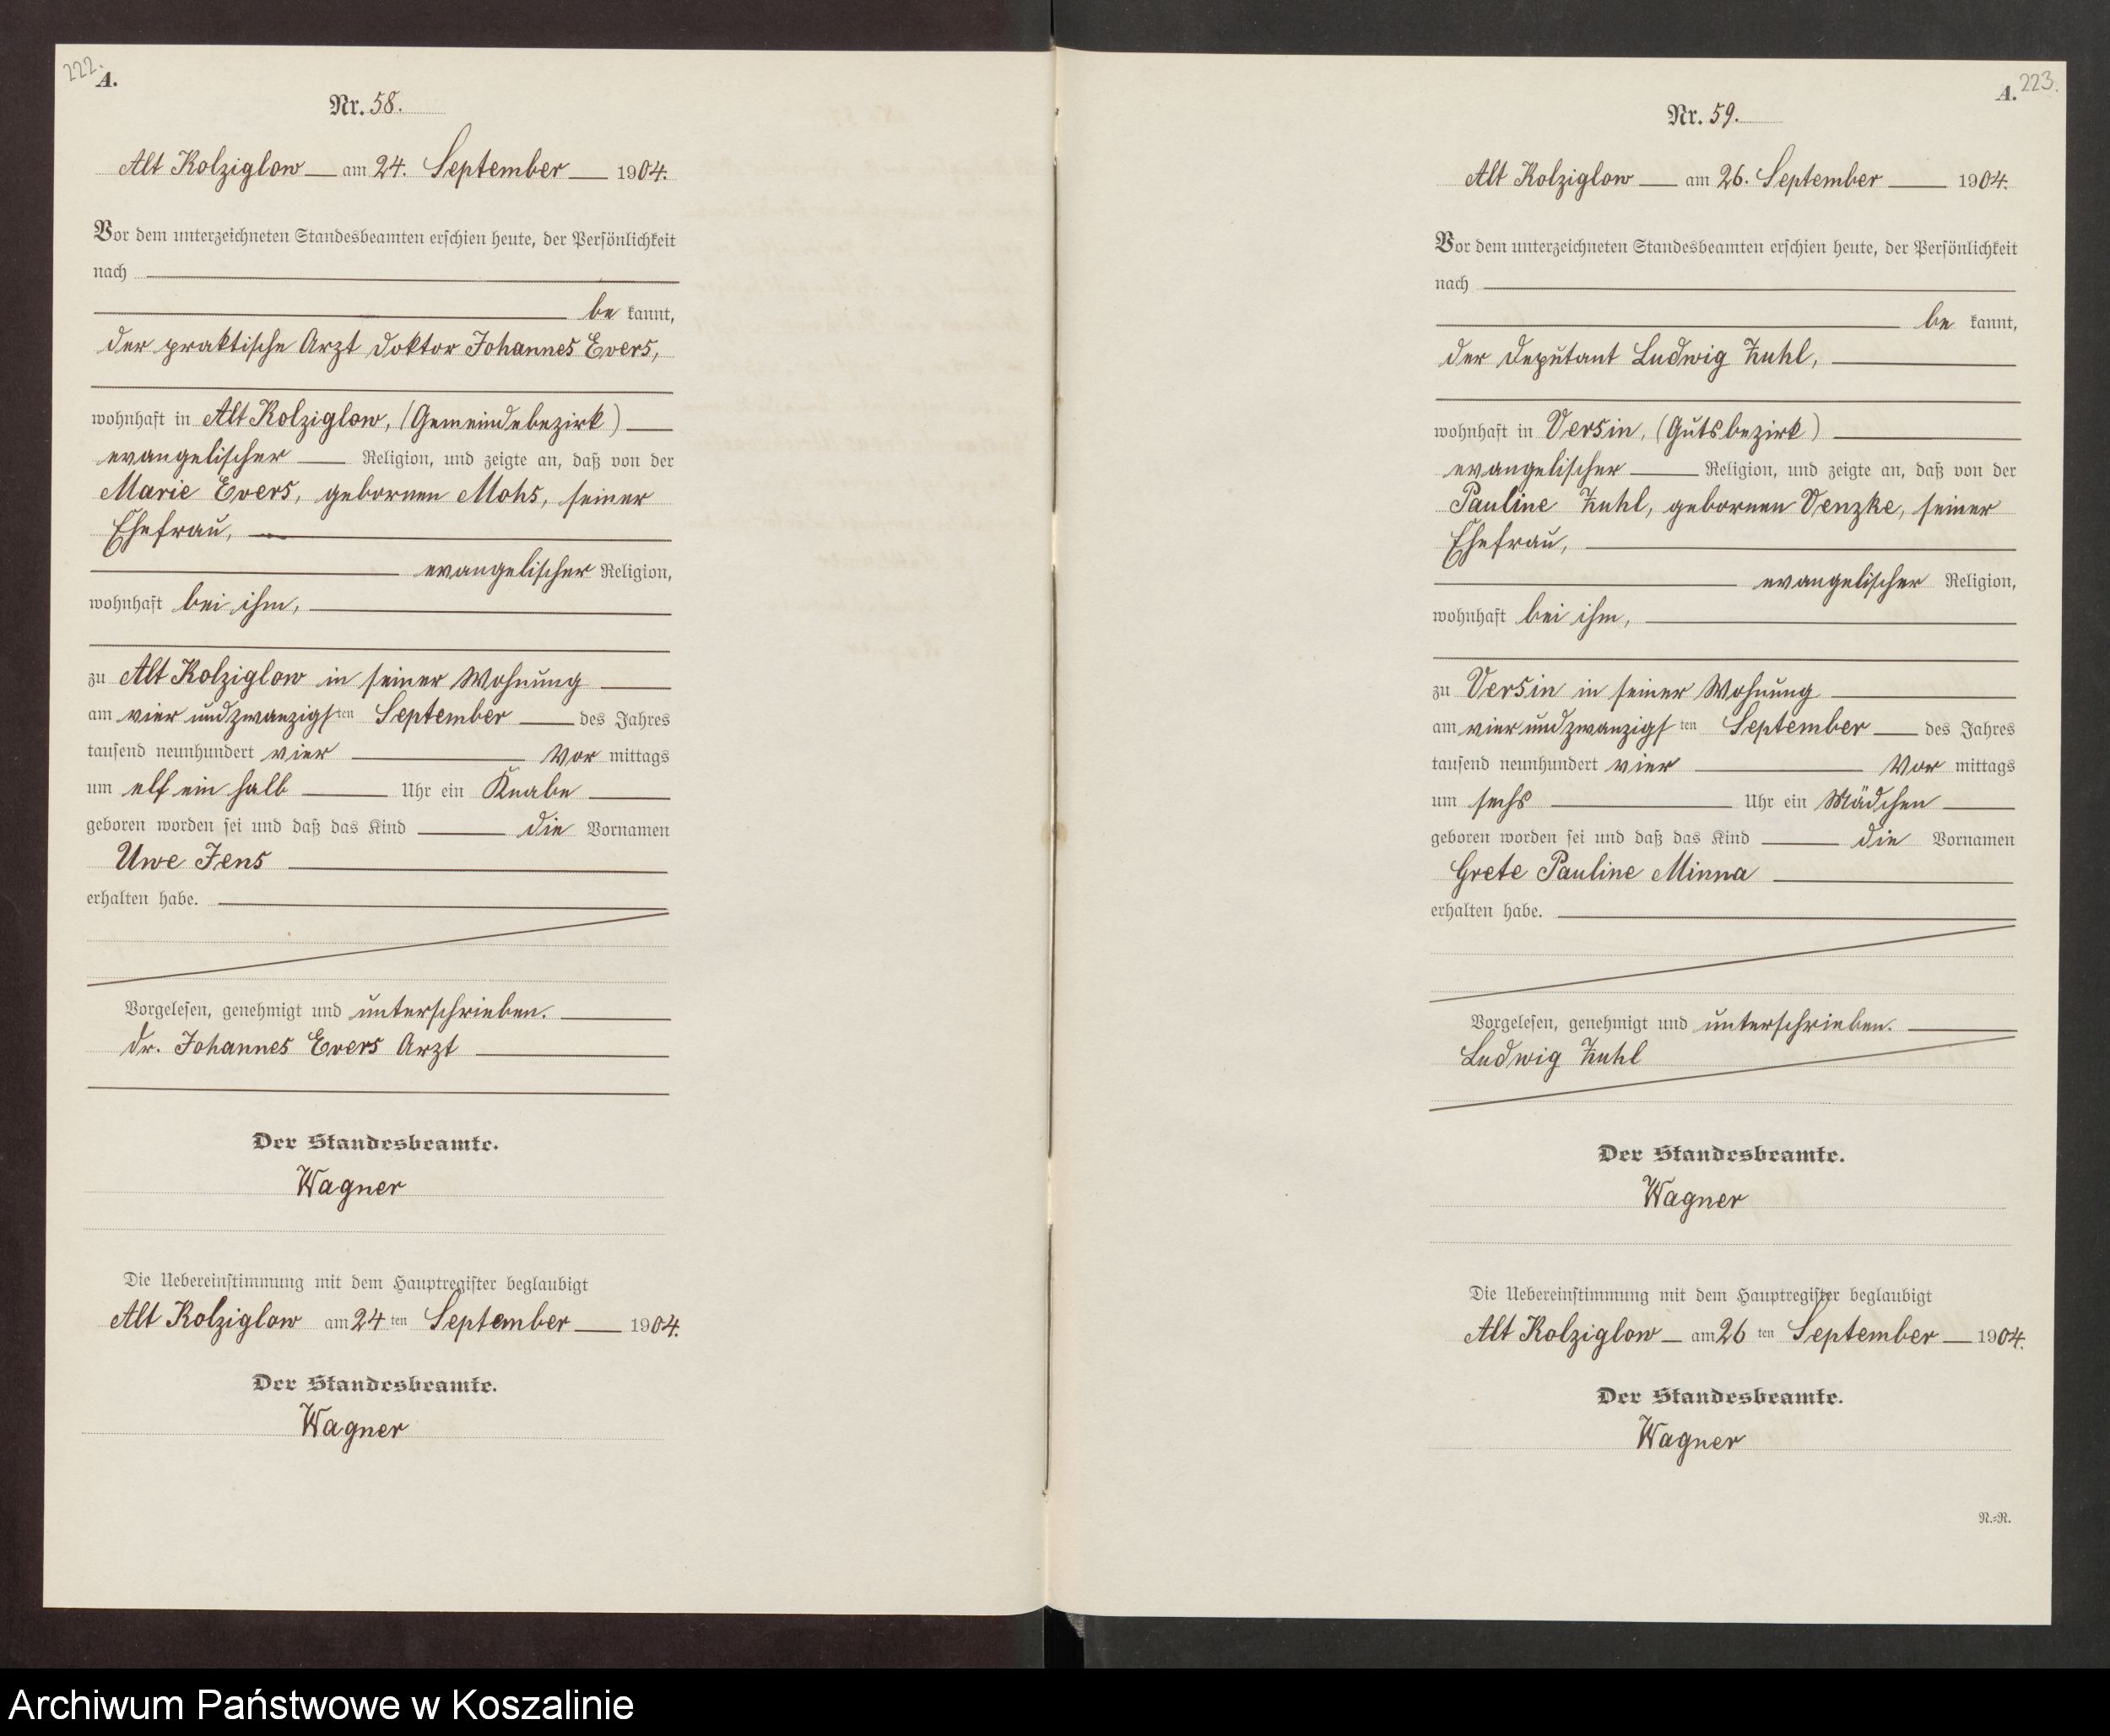 222.
A.
Nr. 58.
Alt Kolziglow am 24. September 1904.
Vor dem unterzeichneten Standesbeamten erschien heute, der Persönlichkeit
nach
be kannt,
der praktische Arzt Doktor Johannes Evers,
wohnhaft in Alt Kolziglow, (Gemeindebezirk)
evangelischer Religion, und zeigte an, daß von der
Marie Evers, gebornen Mohs, seiner
Ehefrau,
evangelischer Religion,
wohnhaft bei ihm,
zu Alt Kolziglow in seiner Wohnung
am vier und zwanzigsten September des Jahres
tausend neunhundert vier Vor mittags
um elf ein halb Uhr ein Knabe
geboren worden sei und daß das Kind die Vornamen
Uwe Jens
erhalten habe.
Vorgelesen, genehmigt und unterschrieben.
Dr. Johannes Evers Arzt
Der Standesbeamte.
Wagner
Die Uebereinstimmung mit dem Hauptregister beglaubigt
Alt Kolziglow am 24 ten September 1904.
Der Standesbeamte.
Wagner
A. 223.
Nr. 59.
Alt Kolziglow am 26. September 1904.
Vor dem unterzeichneten Standesbeamten erschien heute, der Persönlichkeit
nach
be kannt,
der Deputant Ludwig Zuhl,
wohnhaft in Versin, (Gutsbezirk)
evangelischer Religion, und zeigte an, daß von der
Pauline Zuhl, gebornen Venzke, seiner
Ehefrau,
evangelischer Religion,
wohnhaft bei ihm,
zu Versin in seiner Wohnung
am vier und zwanzigs ten September des Jahres
tausend neunhundert vier Vor mittags
um sechs Uhr ein Mädchen
geboren worden sei und daß das Kind die Vornamen
Grete Pauline Minna
erhalten habe.
Vorgelesen, genehmigt und unterschrieben.
Ludwig Zuhl
Der Standesbeamte.
Wagner
Die Uebereinstimmung mit dem Hauptregister beglaubigt
Alt Kolziglow am 26 ten September 1904.
Der Standesbeamte.
Wagner
N.=R.
Archiwum Państwowe w Koszalinie